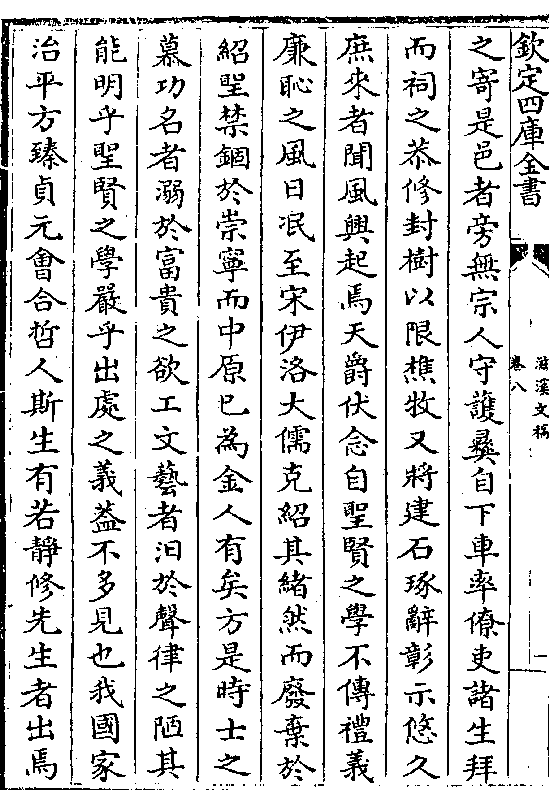 欽定四庫全書
滋溪文稿
卷八
之寄是邑者旁無宗人守護彛自下車率僚吏諸生拜
而祠之恭修封樹以限樵牧又將建石琢辭彰示悠久
庶來者聞風興起焉天爵伏念自聖賢之學不傳禮義
廉恥之風日泯至宋伊洛大儒克紹其緒然而廢棄於
紹聖禁錮於崇寧而中原已為金人有矣方是時士之
慕功名者溺於富貴之欲工文藝者汨於聲律之陋其
能明乎聖賢之學嚴乎出處之義葢不多見也我國家
治平方臻貞元會合哲人斯生有若靜修先生者出焉